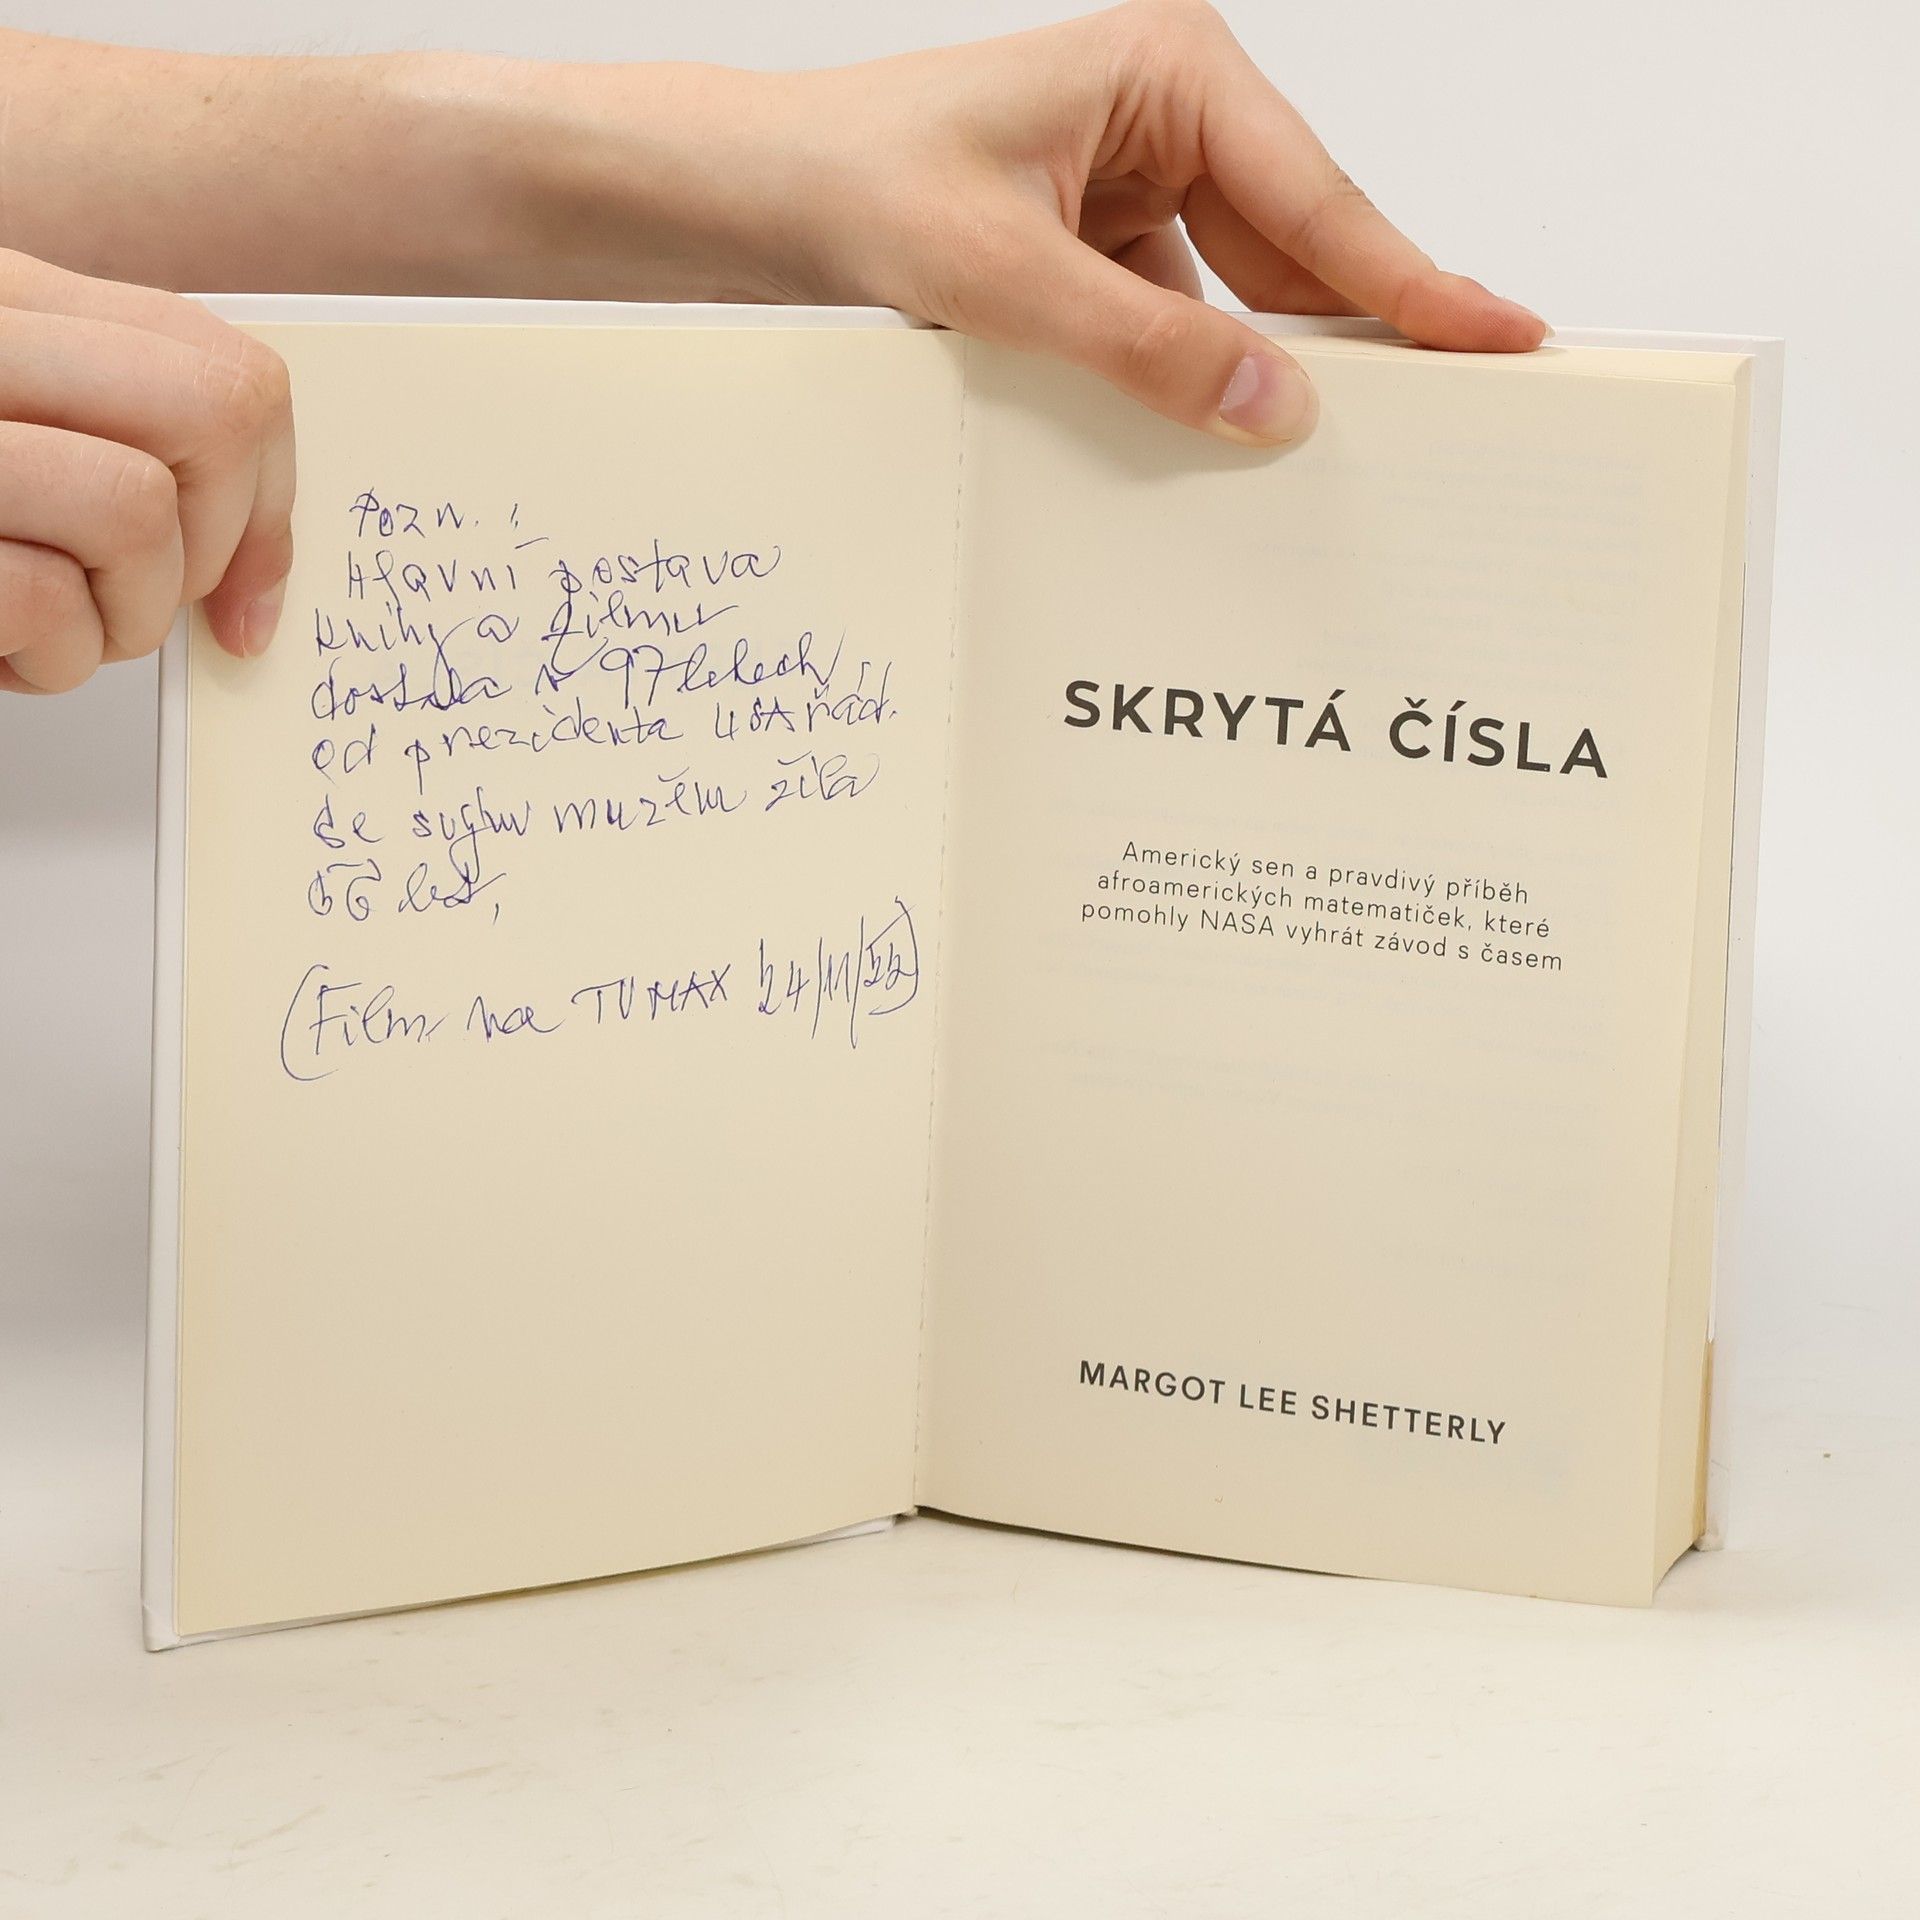 Pozn.:
Hlavní postava
knihy a filmu
dostala v 97 letech
od prezidenta USA řád.
Se svým mužem žila
56 let,
(Film na TV MAX 24/11/22)
SKRYTÁ ČÍSLA
Americký sen a pravdivý příběh
afroamerických matematiček, které
pomohly NASA vyhrát závod s časem
MARGOT LEE SHETTERLY